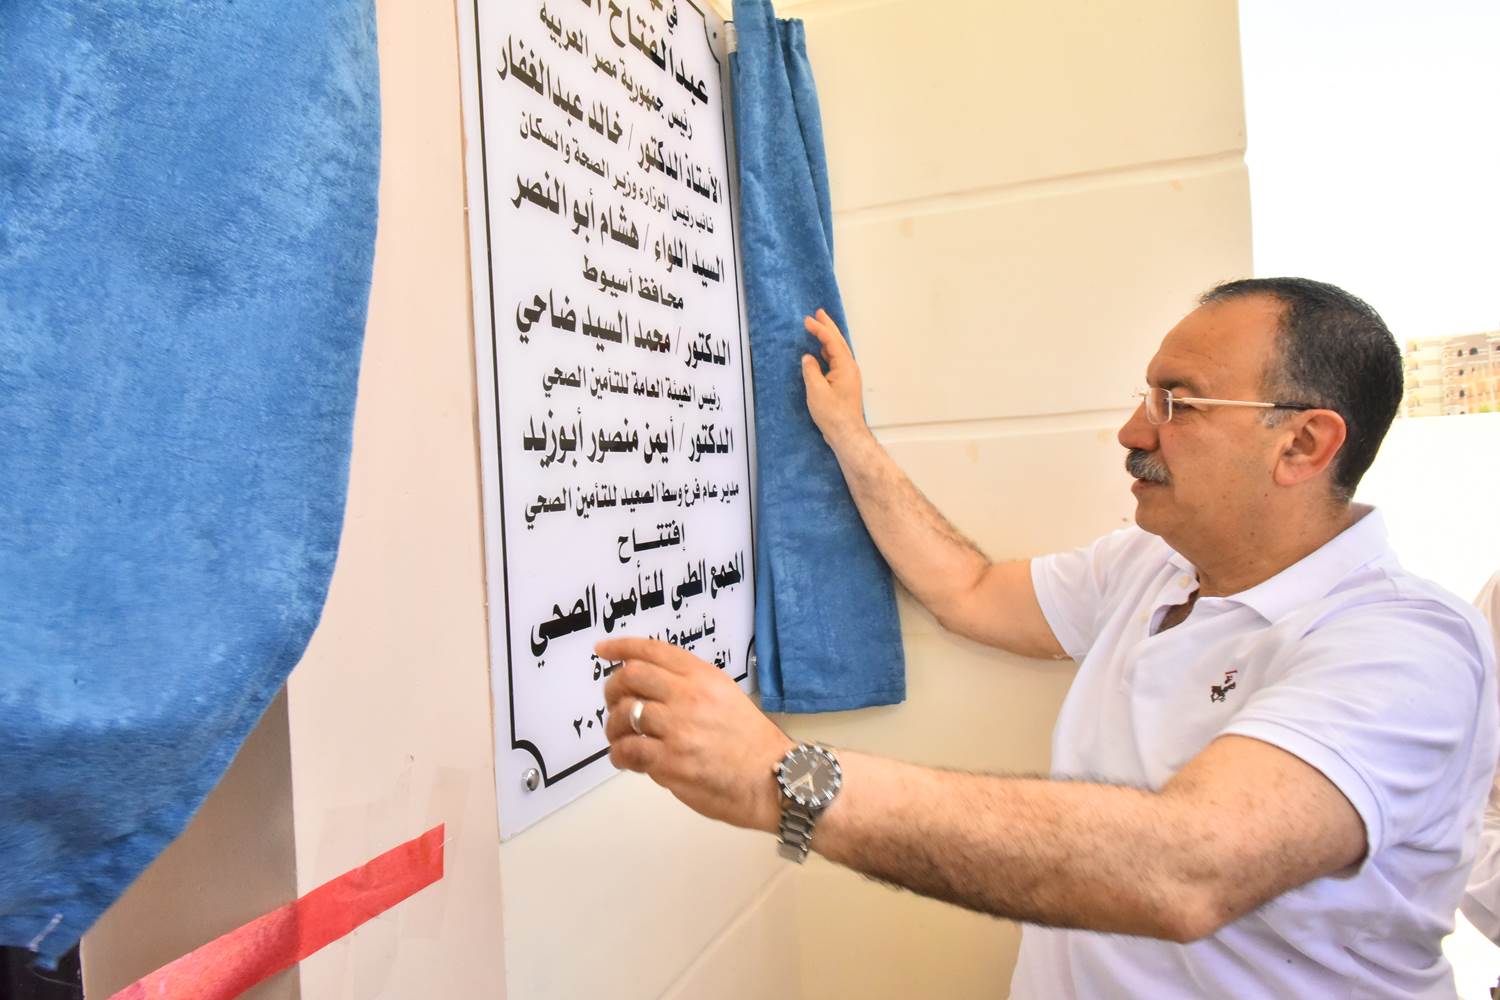 في
عبدالفتاح
رئيس جمهورية مصر العربية
الأستاذ الدكتور / خالد عبدالغفار
نائب رئيس الوزراء وزير الصحة والسكان
السيد اللواء / هشام أبو النصر
محافظ أسيوط
الدكتور / محمد السيد ضاحي
رئيس الهيئة العامة للتأمين الصحي
الدكتور / أيمن منصور أبوزيد
مدير عام فرع وسط الصعيد للتأمين الصحي
إفتتـــاح
المجمع الطبي للتأمين الصحي
بأسيوط